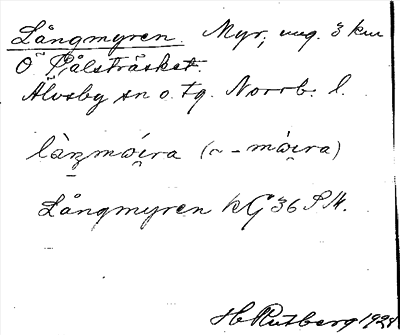 Långmyren. Myr, ung. 3 km
Ö Pålsträsket.
Älvsby sn o. tg. Norrb. l.
Långmyren hG 36
H Rutberg 1924